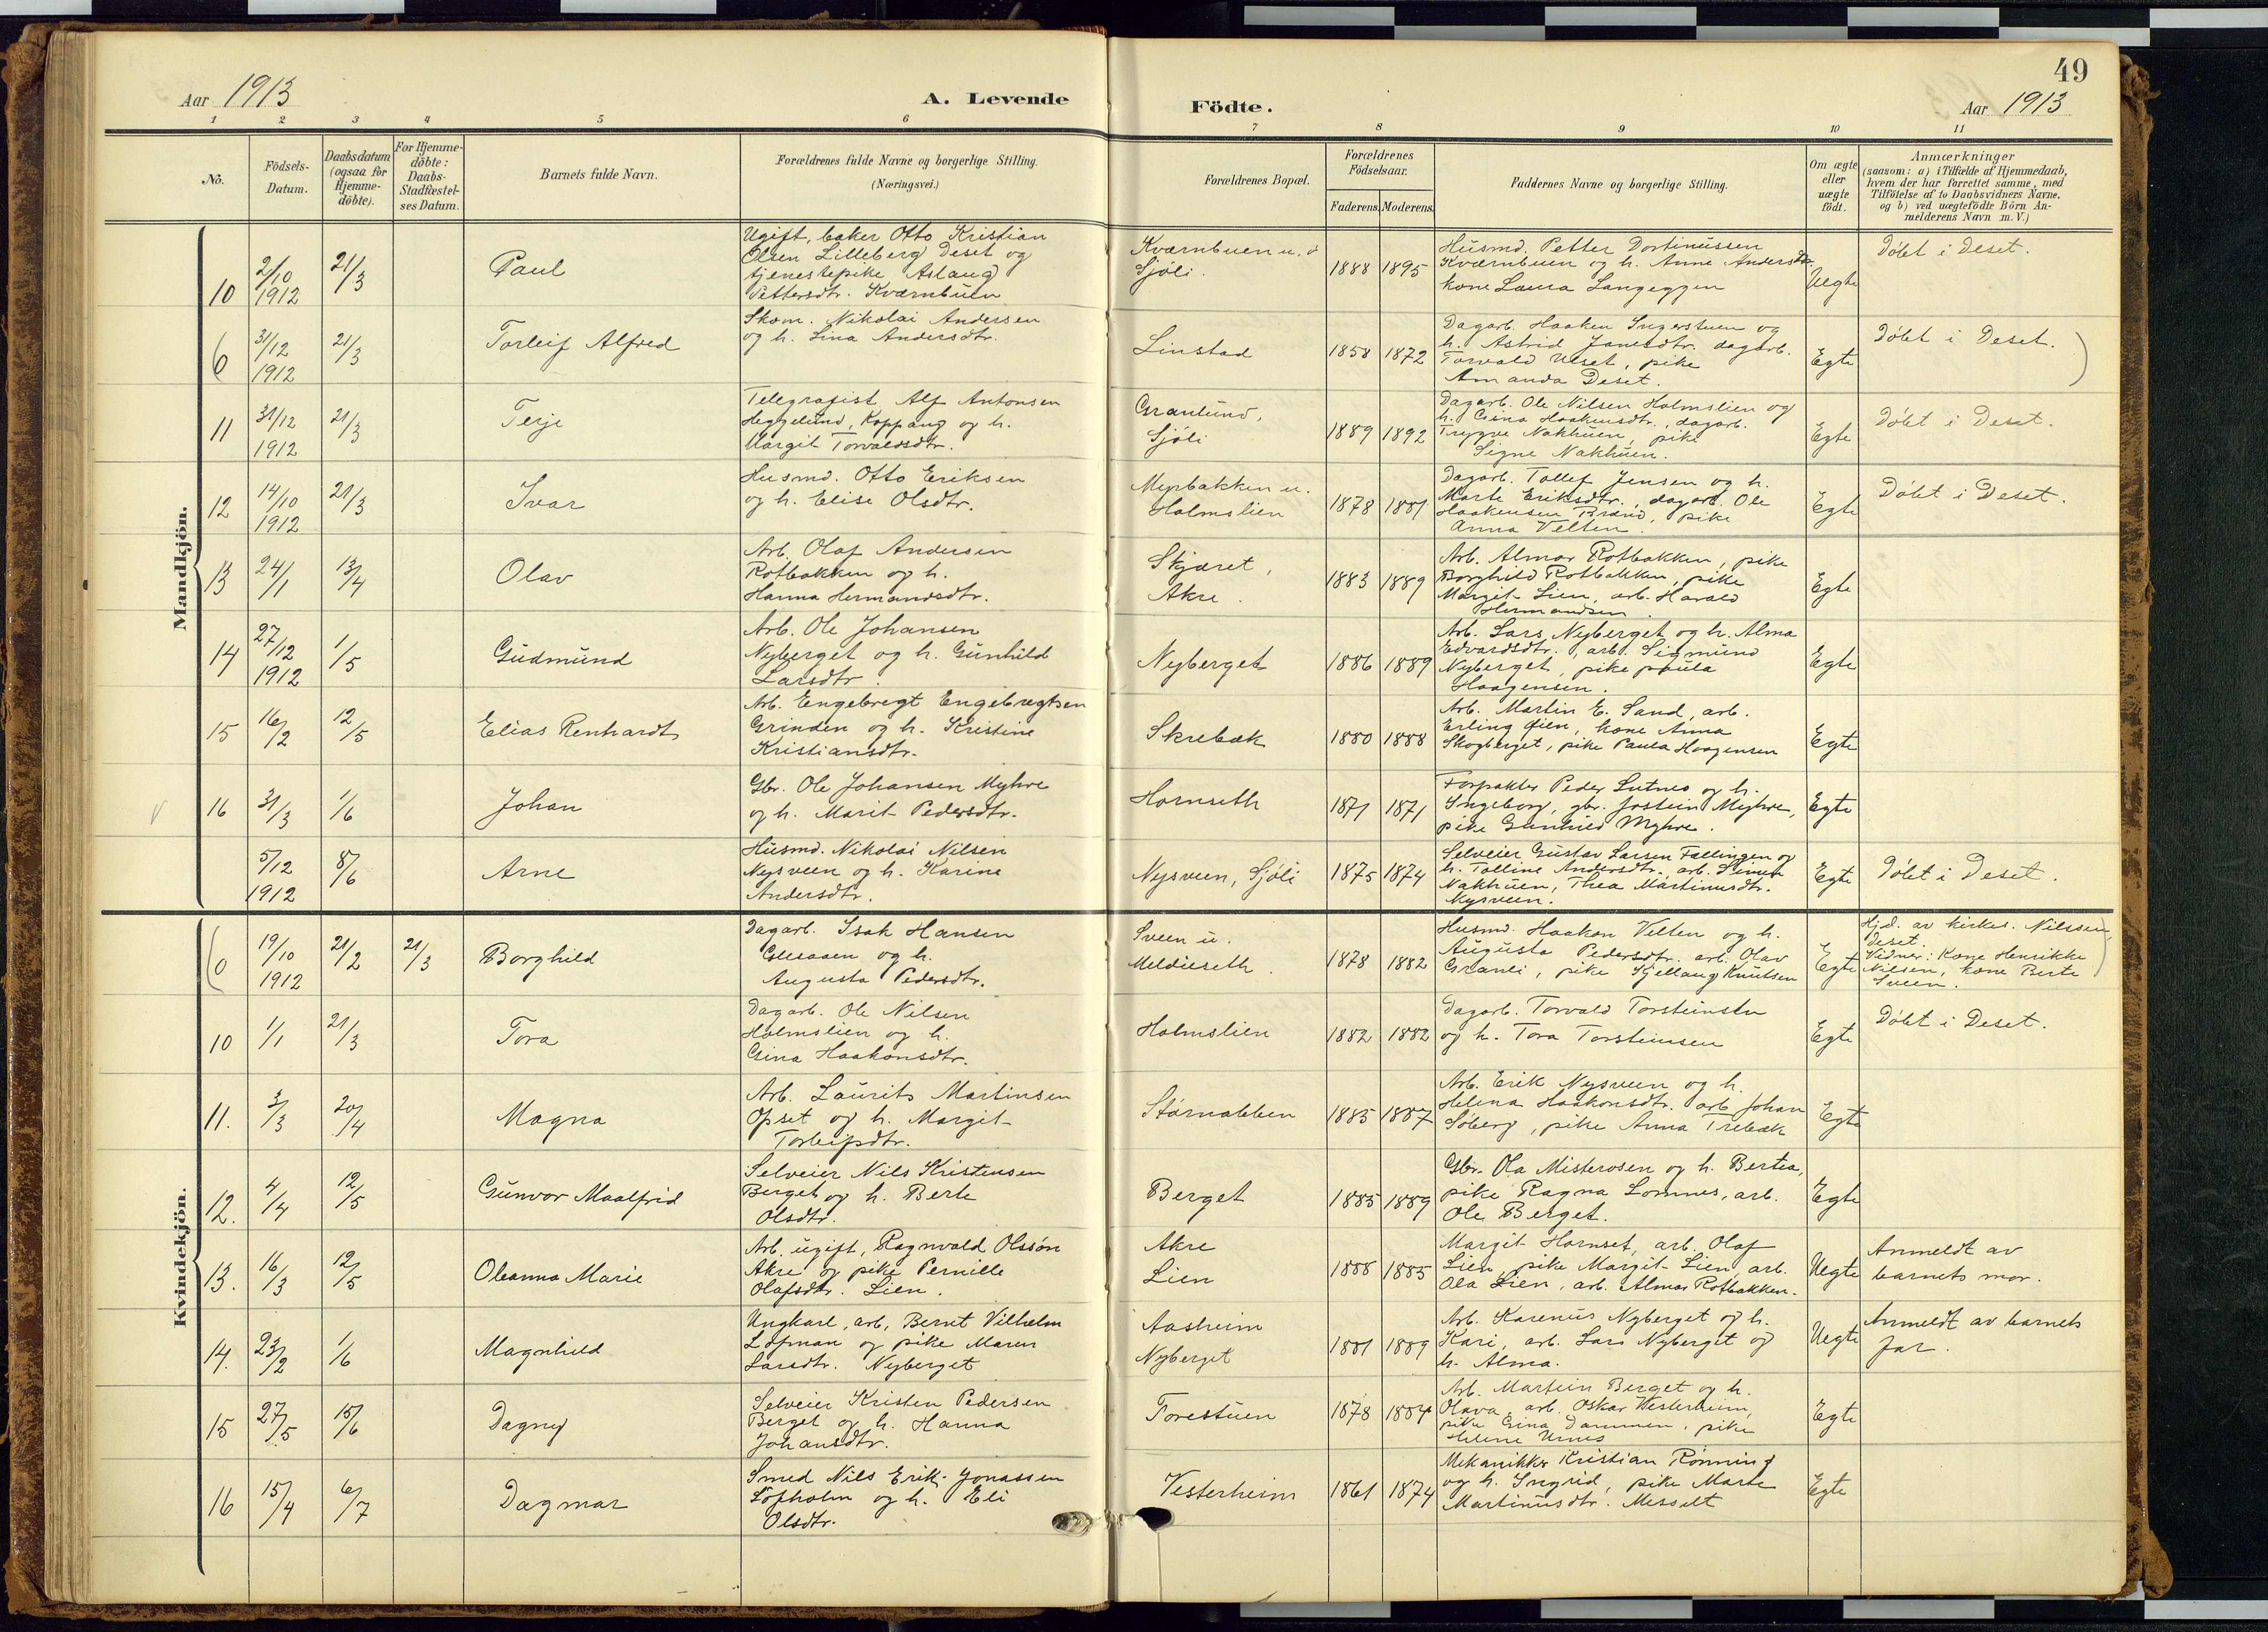 49
Aar 1913
A. Levende
Födte.
Aar 1913
1 2 3 4 5 6 7 8 9 10 11
No.
Födsels-
Datum.
Daabsdatum
(ogsaa for
Hjemme-
döbte).
For Hjemme-
döbte:
Daabs-
Stadfæstel-
ses Datum.
Barnets fulde Navn.
Forældrenes fulde Navne og borgerlige Stilling.
(Næringsvei.)
Forældrenes Bopæl.
Forældrenes
Födselsaar.
Faderens. Moderens.
Faddernes Navne og borgerlige Stilling.
Om ægte
eller
uægte
födt.
Anmærkninger
(saasom: a) i Tilfælde af Hjemmedaab,
hvem der har forrettet samme, med
Tilföielse af to Daabsvidners Navne,
og b) ved uægtefödte Börn An-
melderens Navn m. V.)
Mandkjön.
10 2/10 1912 21/3 Paul
Ugift, baker Otto Kristian
Olsen Lilleberg Deset og
tjenestepike Aslaug
Pettersdtr. Kværnbuen
Kværnbuen u.
Sjöli.
1888 1895
Husmd. Petter Dortinussen
Kværnbuen og h. Anne Andersdtr.
kone Laura Langeggen
Uegte
Döbt i Deset.
(6 31/12 1912 21/3 Torleif Alfred
Skom. Nikolai Andersen
og h. Lina Andersdtr.
Linstad
1858 1872
Dagarb. Haaken Ingerstuen og
h. Astrid Jansdtr. dagarb.
Torvald Ulset, pike
Amanda Deset.
Egte
Döbt i Deset. )
11 31/12 1912 21/3 Terje
Telegrafist Alf Antonsen
Heggelund, Koppang og h.
Margit Torvaldsdtr.
Granlund,
Sjöli
1889 1892
Dagarb. Ole Nilsen Holmslien og
h. Gina Haakensdtr., dagarb.
Trygve Nakhuen, pike
Signe Nakhuen.
Egte
Döbt i Deset.
12 14/10 1912 21/3 Ivar
Husmd. Otto Eriksen
og h. Elise Olsdtr.
Myrbakken u.
Holmslien
1878 1881
Dagarb. Tollef Jensen og h.
Marte Eriksdtr., dagarb. Ole
Haakensen Brænd, pike
Anna Velten
Egte
Döbt i Deset.
13 24/1 13/4 Olav
Arb. Olaf Andersen
Rotbakken og h.
Hanna Hermansdtr.
Skjæret,
Akre.
1883 1889
Arb. Almar Rotbakken, pike
Borghild Rotbakken, pike
Margit Lien, arb. Harald
Hermandsen
Egte
14 27/12 1912 1/5 Gudmund
Arb. Ole Johansen
Nyberget og h. Gunhild
Larsdtr.
Nyberget
1886 1889
Arb. Lars Nyberget og h. Alma
Edvardsdtr., arb. Sigmund
Nyberget, pike Paula
Haagensen.
Egte
15 16/2 12/5 Elias Renhardt
Arb. Engebregt Engebregtsen
Grinden og h. Kristine
Kristiansdtr.
Skrebæk
1880 1888
Arb. Martin E. Sand, arb.
Erling Øien, kone Anna
Skogberget, pike Paula Haagensen
Egte
V 16 31/3 1/6 Johan
Gbr. Ole Johansen Myhre
og h. Marit Pedersdtr.
Hornseth
1871 1871
Forpakter Peder Lutnes og h.
Ingeborg, gbr. Jostein Myhre,
pike Gunhild Myhre.
Egte
5/12 1912 8/6 Arne
Husmd. Nikolai Nilsen
Nysveen og h. Karine
Andersdtr.
Nysveen, Sjöli
1875 1874
Selveier Gustav Larsen Fallingen og
h. Talline Andersdtr., arb. Simen
Nakhuen, Thea Martinusdtr.
Nysveen.
Egte
Döbt i Deset.
Kvindekjön.
(0 19/10 1912 21/2 21/3 Borghild
Dagarb. Isak Hansen
og h.
Augusta Pedersdtr.
Sveen u.
Meldieseth.
1878 1882
Husmd. Haakon Velten og h.
Augusta Pedersdtr. arb. Olav
Granli, pike Kjellaug Knutsen
Egte
Hjd. av kirkes. Nilssen,
Deset.
Vidner: Kone Henrikke
Nilsen, kone Berte
Sveen. )
10 1/1 21/3 Tora
Dagarb. Ole Nilsen
Holmslien og h.
Gina Haakonsdtr.
Holmslien
1882 1882
Dagarb. Torvald Torsteinsen
og h. Tora Torsteinsen
Egte
Döbt i Deset.
11. 3/3 20/4 Magna
Arb. Laurits Martinsen
Opset og h. Margit
Torleifsdtr.
Störnabben
1885 1887
Arb. Erik Nysveen og h.
Helena Haakonsdtr. arb. Johan
Söberg, pike Anna Trebæk
Egte
12. 4/4 12/5 Gunvor Maalfrid
Selveier Nils Kristensen
Berget og h. Berte
Olsdtr.
Berget
1885 1889
Gbr. Ola Misterosen og h. Bertea,
pike Ragna Lomnes, arb.
Ole Berget.
Egte
13. 16/3 12/5 Oleanna Marie
Arb. ugift, Ragnvald Olssön
Akre og pike Pernille
Olafsdtr. Lien.
Akre
Lien
1888 1885
Margit Hornset, arb. Olaf
Lien, pike Margit Lien arb.
Ola Lien, arb. Almar Rotbakken.
Uegte
Anmeldt av
barnets mor.
14. 23/2 1/6 Magnhild
Ungkarl, arb. Bernt Vilhelm
Löfman og pike Maren
Larsdtr. Nyberget
Aasheim
Nyberget
1881 1889
Arb. Karenus Nyberget og h.
Kari, arb. Lars Nyberget og
h. Alma.
Uegte
Anmeldt av barnets
far.
15 27/5 15/6 Dagny
Selveier Kristen Pedersen
Berget og h. Hanna
Johansdtr.
Forestuen
1878 1884
Arb. Martein Berget og h.
Olava, arb. Oskar Vesterheim,
pike Gina Dammen, pike
Helene Urnes
Egte
16 15/4 6/7 Dagmar
Smed Nils Erik Jonassen
Löfholm og h. Eli
Olsdtr.
Vesterheim
1861 1874
Mekanikker Kristian Rönning
og h. Ingrid, pike Marte
Martinusdtr. Messelt
Egte